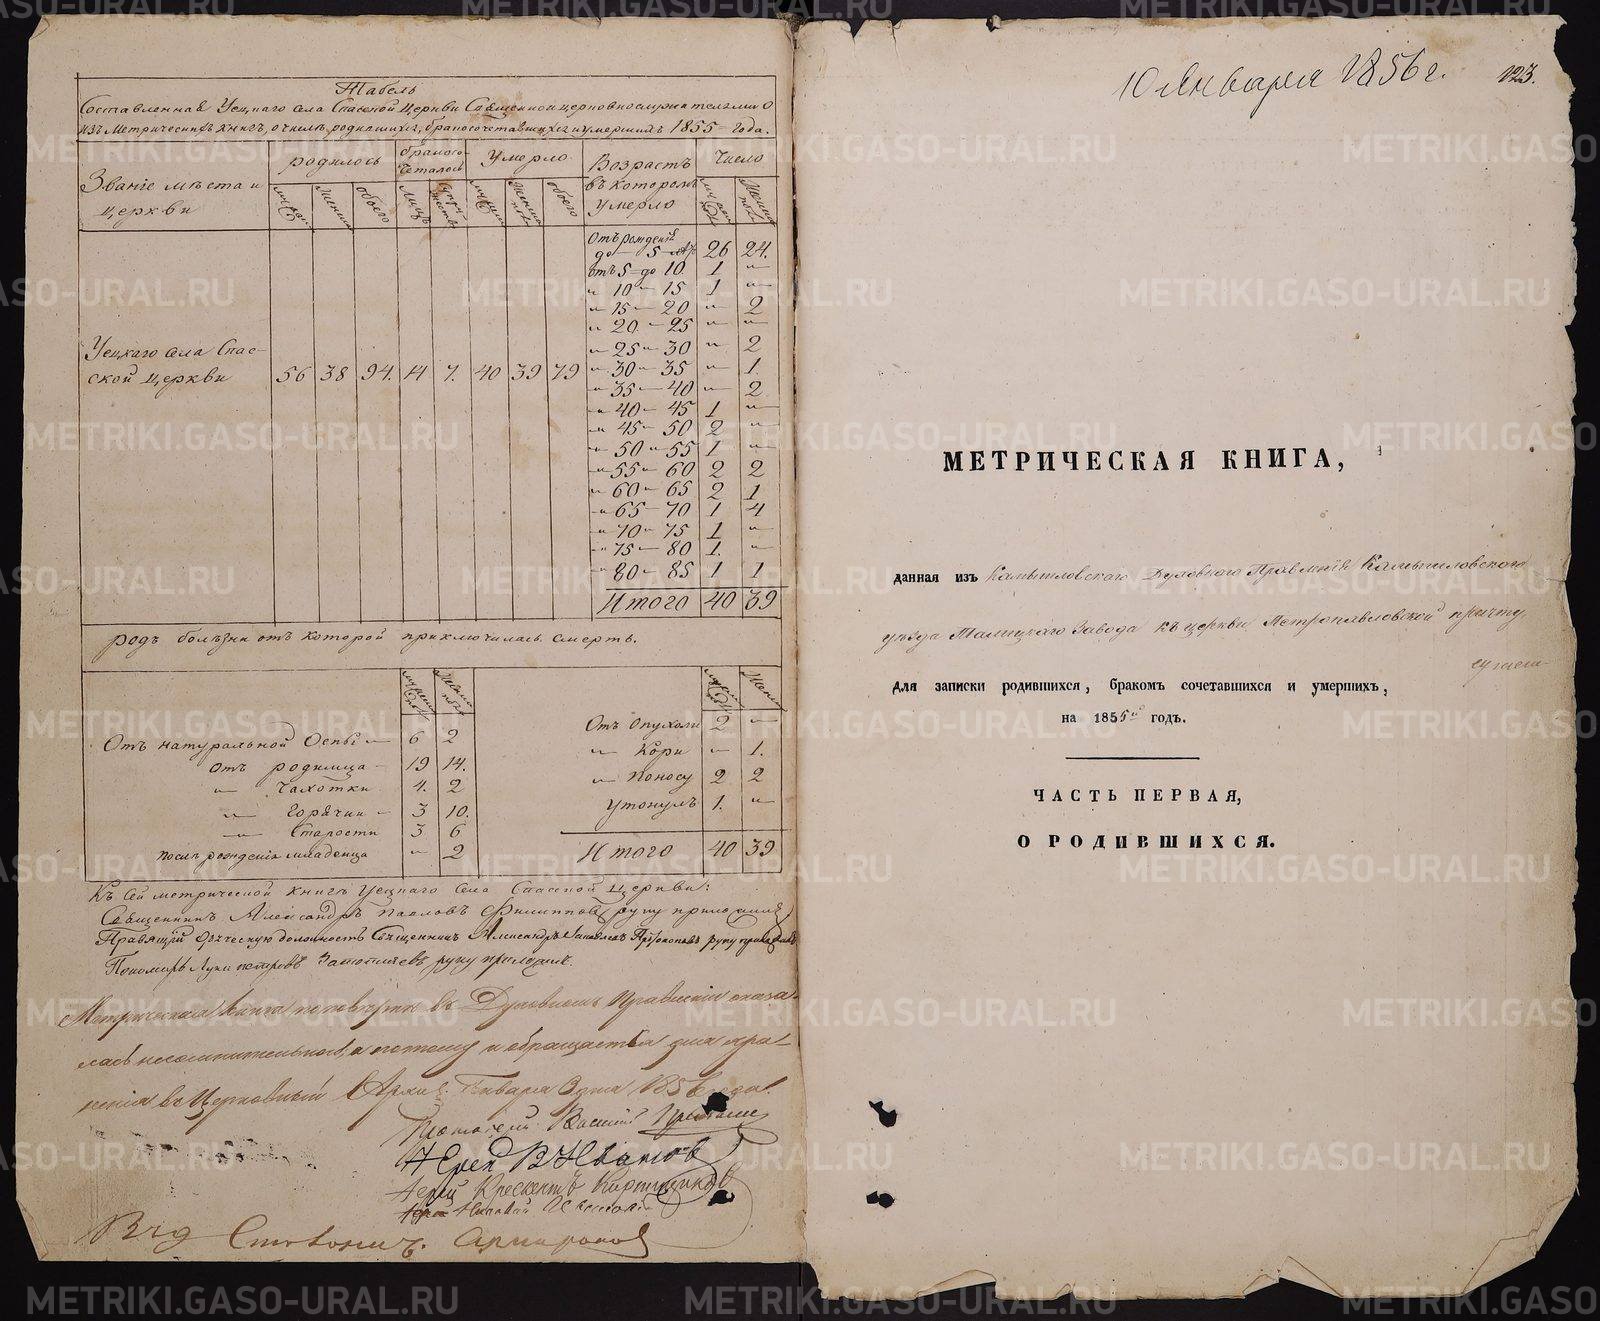 Табель
Составленная Уецкаго села Спасской Церкви Священноцерковнослужителями
изъ Метрическихъ книгъ, о числѣ родившихся, бракосочетавшихся и умершихъ 1855 года.
Званіе мѣста и церкви
родилось
бракосочеталось
Умерло
Возрастъ въ которомъ умерло
Число
обоего
обоего
Отъ рожденія до 5 лѣтъ 26 24.
отъ 5 до 10. 1 "
" 10 — 15 1 "
" 15 — 20 " 2
" 20 — 25 " "
" 25 " 30 " 2
" 30 — 35 " 1.
" 35 — 40 " 2
" 40 — 45 1 "
" 45 — 50 2 "
" 50 " 55 1 "
" 55 " 60 2 2
" 60 " 65 2 1
" 65 — 70 1 4
" 70 " 75 1 "
" 75 — 80 1. "
" 80 — 85 1 1
Итого 40 39
Уецкаго села Спасской церкви 56 38 94. 14 7. 40 39 79
родъ болѣзни отъ которой приключилась смерть.
Отъ натуральной Оспы — 6 2
отъ родимца — 19 14.
" Чахотки 4. 2
" Горячки — 3 10.
" Старости 3 6
послѣ рожденія младенца " 2
Отъ Опухоли 2 "
" Кори " 1.
" Поносу 2 2
утонулъ 1. "
Итого 40 39
Къ сей метрической книгѣ Уецкаго села Спасской Церкви:
Священникъ Александръ Павловъ Филипповъ руку приложилъ
Правящій должность Священникъ Александръ руку приложилъ
Пономарь Лука Петровъ руку приложилъ.
Метрическая книга по повѣркѣ въ Духовномъ Правленіи оказалась несомнительною, а потому и обращается для хранения въ Церковный Архивъ. Января дня 1856 года.
Протоіерей Василій
Іерей В Ивановъ
Іерей Крескентъ
10 Января 1856 г.
123.
МЕТРИЧЕСКАЯ КНИГА,
данная изъ Камышловскаго Духовнаго Правленія Камышловскаго
уѣзда Талицкаго Завода къ церкви Петропавловской причту
для записки родившихся, бракомъ сочетавшихся и умершихъ,
на 1855й годъ.
ЧАСТЬ ПЕРВАЯ,
О РОДИВШИХСЯ.
METRIKI.GASO-URAL.RU